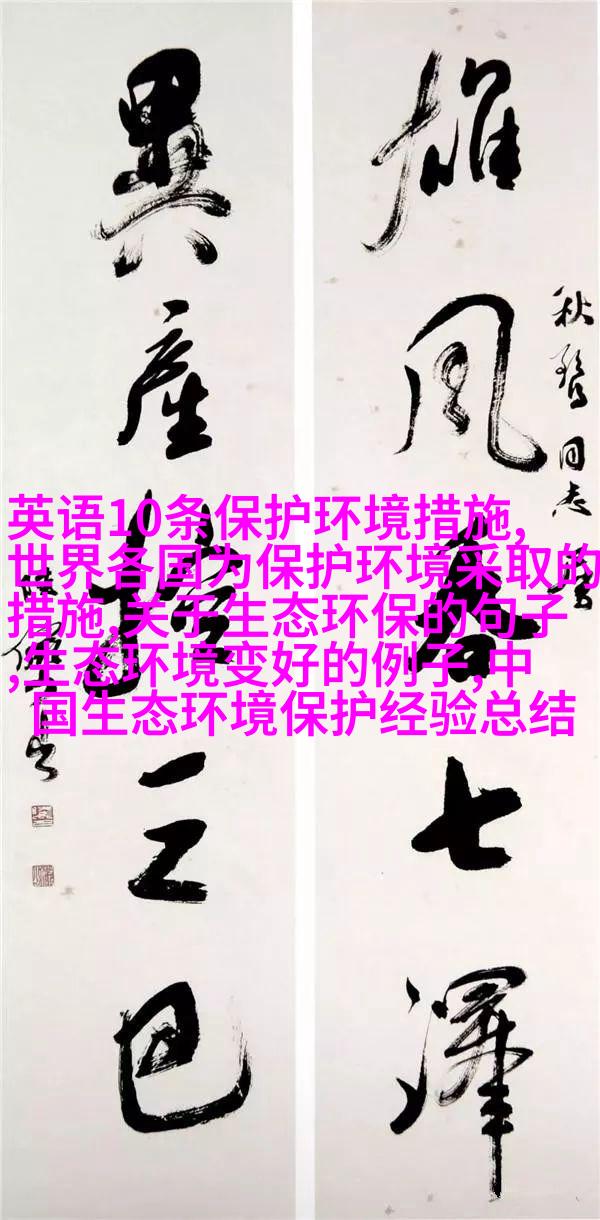 雄风七澤
同志
異產三巴
英语10条保护环境措施,
世界各国为保护环境采取的
措施,关于生态环保的句子
,生态环境变好的例子,中
国生态环境保护经验总结